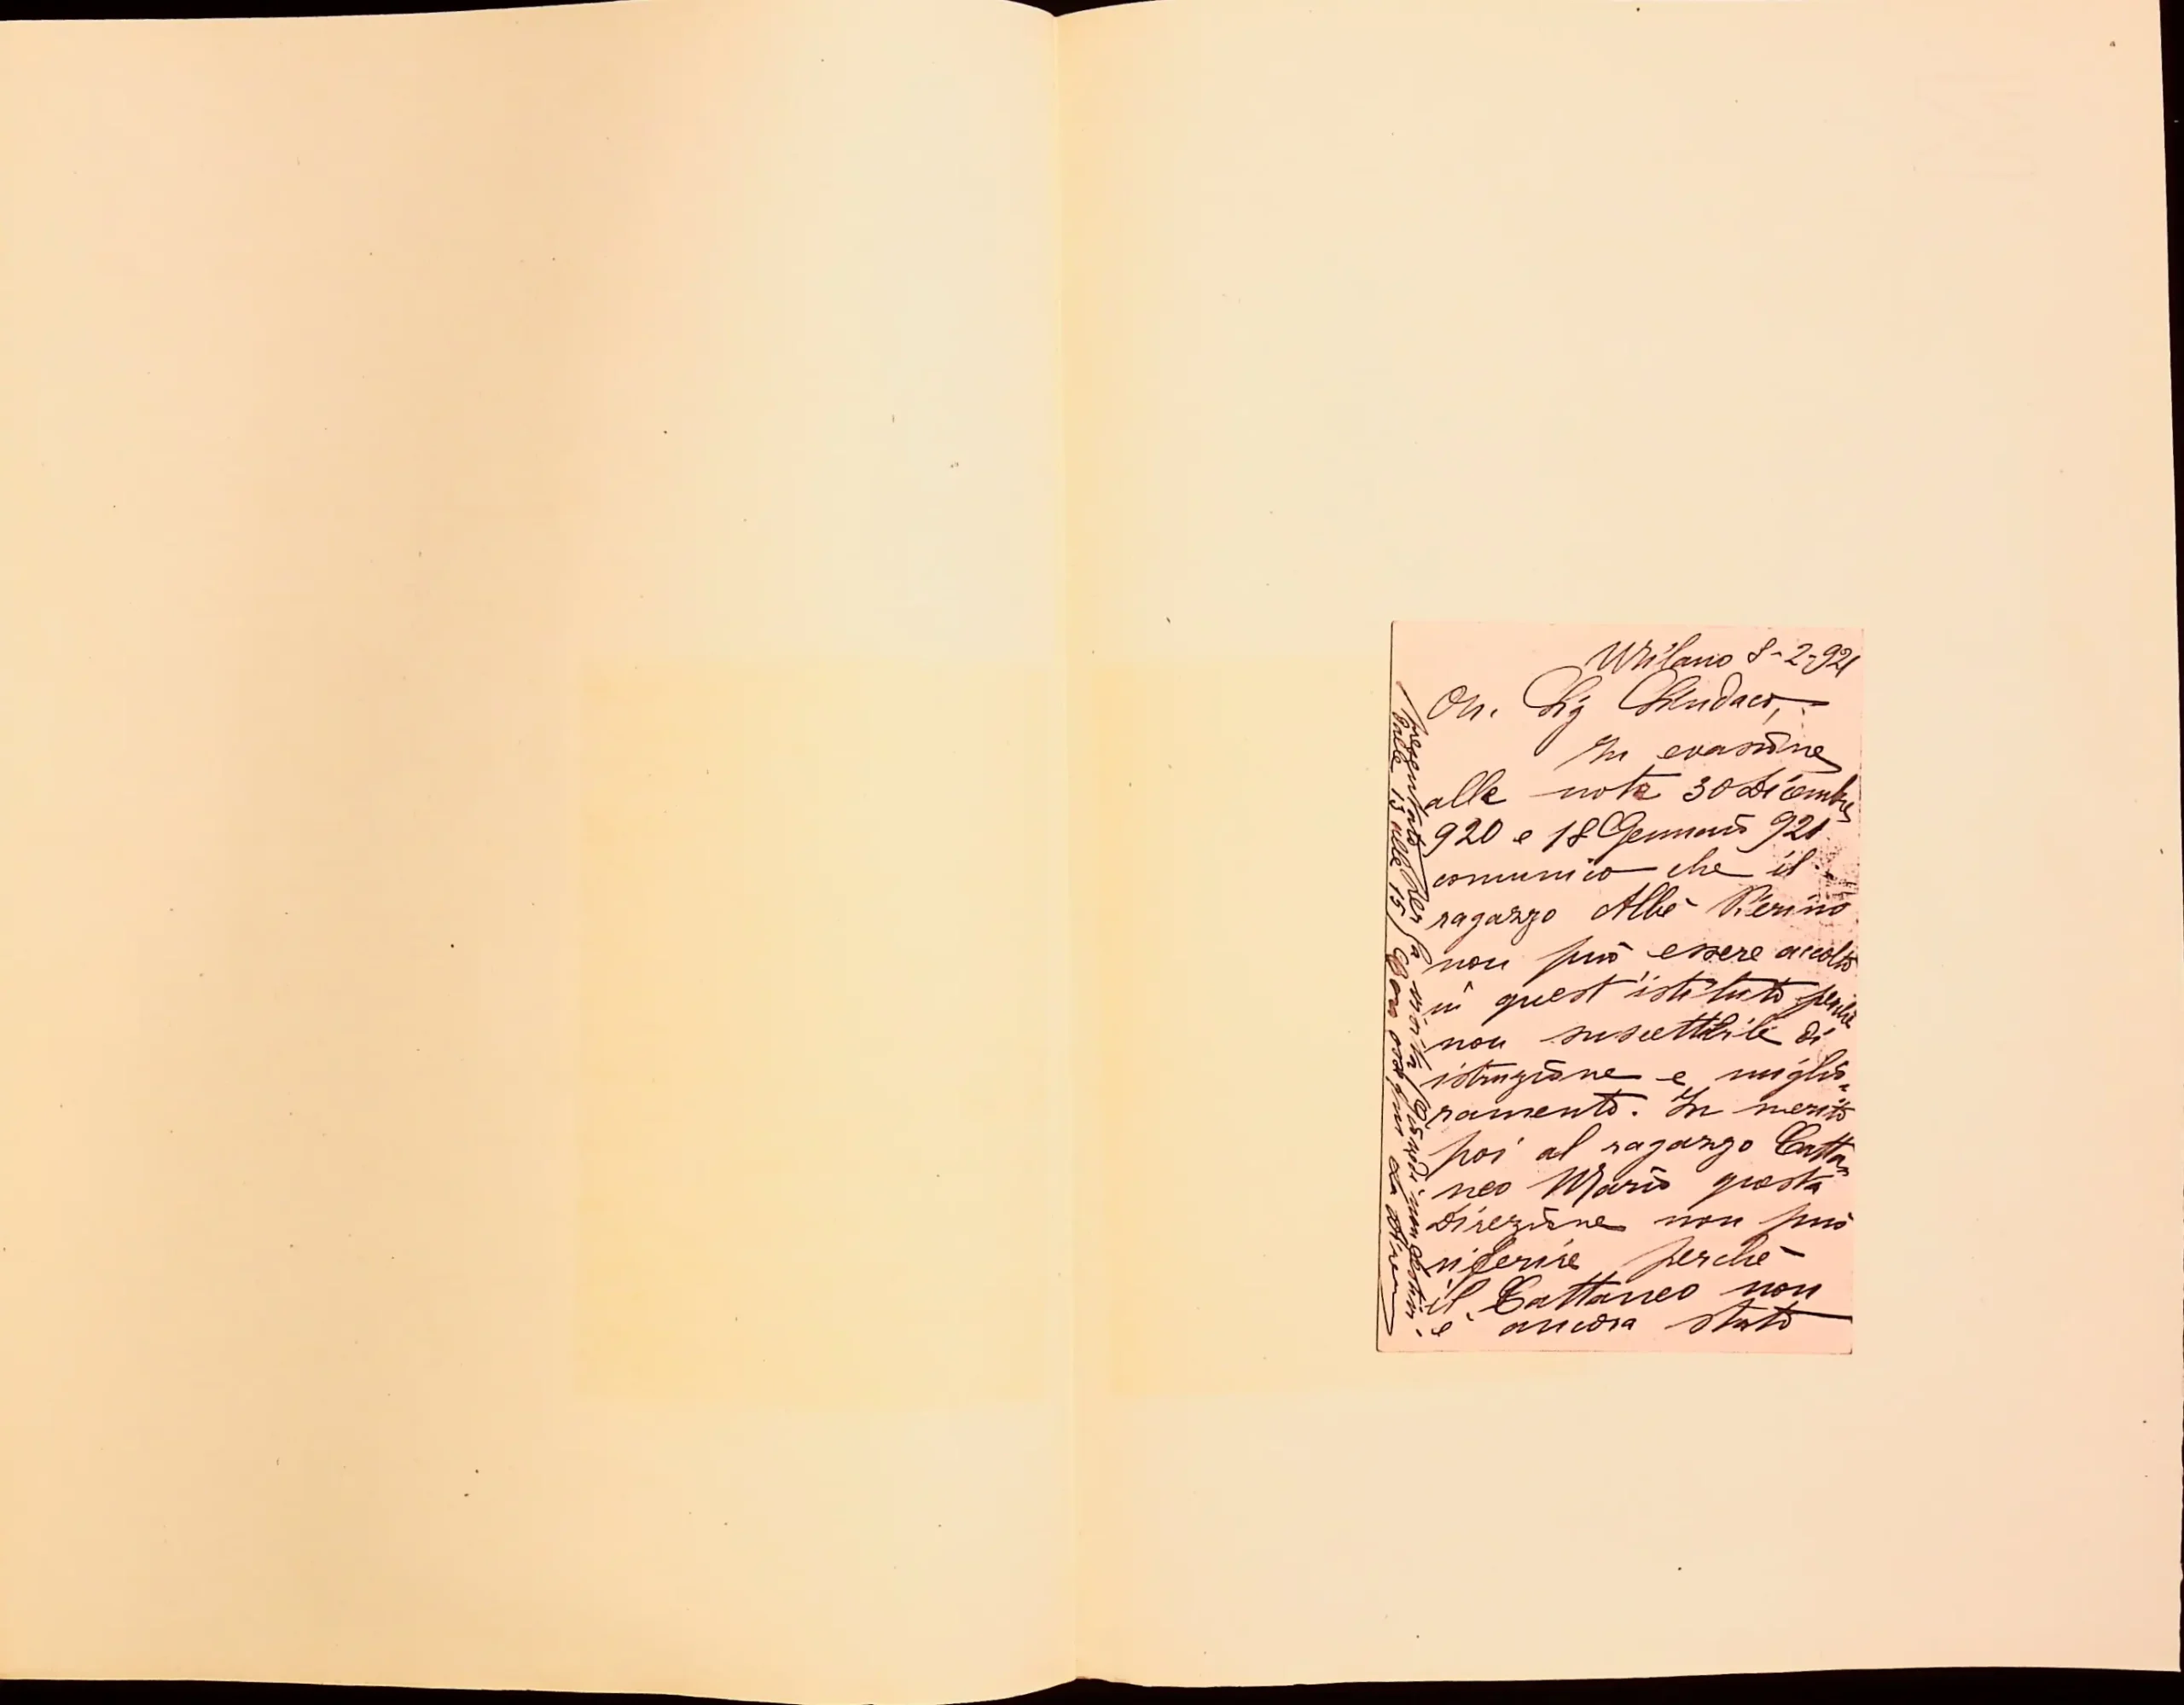 Milano 8-2-921
On. Sig Sindaco,
In evasione
alle note 30 Dicembre
920 e 18 Gennaio 921
comunico che il
ragazzo Albè Pierino
non può essere accolto
in quest'istituto perchè
non suscettibile di
istruzione e miglio-
ramento. In merito
poi al ragazzo Catta-
neo Mario questa
Direzione non può
riferire perchè
il Cattaneo non
è ancora stato
presentato per la visita (Giovedì non festivi
dalle 13 alle 15) Con ossequi La Direz